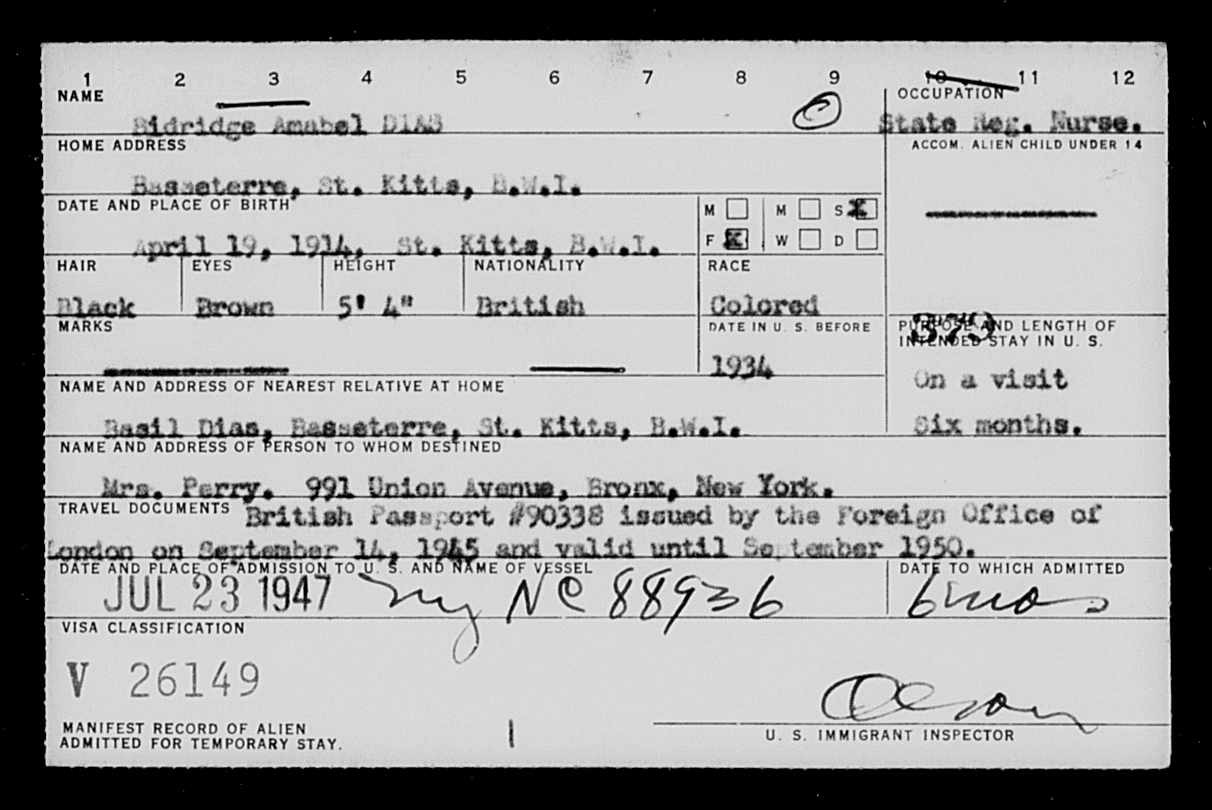 1 2 3 4 5 6 7 8 9 10 11 12
NAME OCCUPATION
Bidridge Amabel DIAS State Reg. Nurse.
HOME ADDRESS ACCOM. ALIEN CHILD UNDER 14
Basseterre, St. Kitts, B.W.I.
DATE AND PLACE OF BIRTH M M S X
April 19, 1914, St. Kitts, B.W.I. F X W D
HAIR EYES HEIGHT NATIONALITY RACE
Black Brown 5' 4" British Colored
MARKS DATE IN U. S. BEFORE PURPOSE AND LENGTH OF
INTENDED STAY IN U. S.
379
1934 On a visit
NAME AND ADDRESS OF NEAREST RELATIVE AT HOME
Basil Dias, Basseterre, St. Kitts, B.W.I. Six months.
NAME AND ADDRESS OF PERSON TO WHOM DESTINED
Mrs. Perry. 991 Union Avenue, Bronx, New York.
TRAVEL DOCUMENTS British Passport #90338 issued by the Foreign Office of
London on September 14, 1945 and valid until September 1950.
DATE AND PLACE OF ADMISSION TO U. S. AND NAME OF VESSEL DATE TO WHICH ADMITTED
JUL 23 1947 ny NC 88936 6 mos
VISA CLASSIFICATION
V 26149
Olson
MANIFEST RECORD OF ALIEN
ADMITTED FOR TEMPORARY STAY.
U. S. IMMIGRANT INSPECTOR